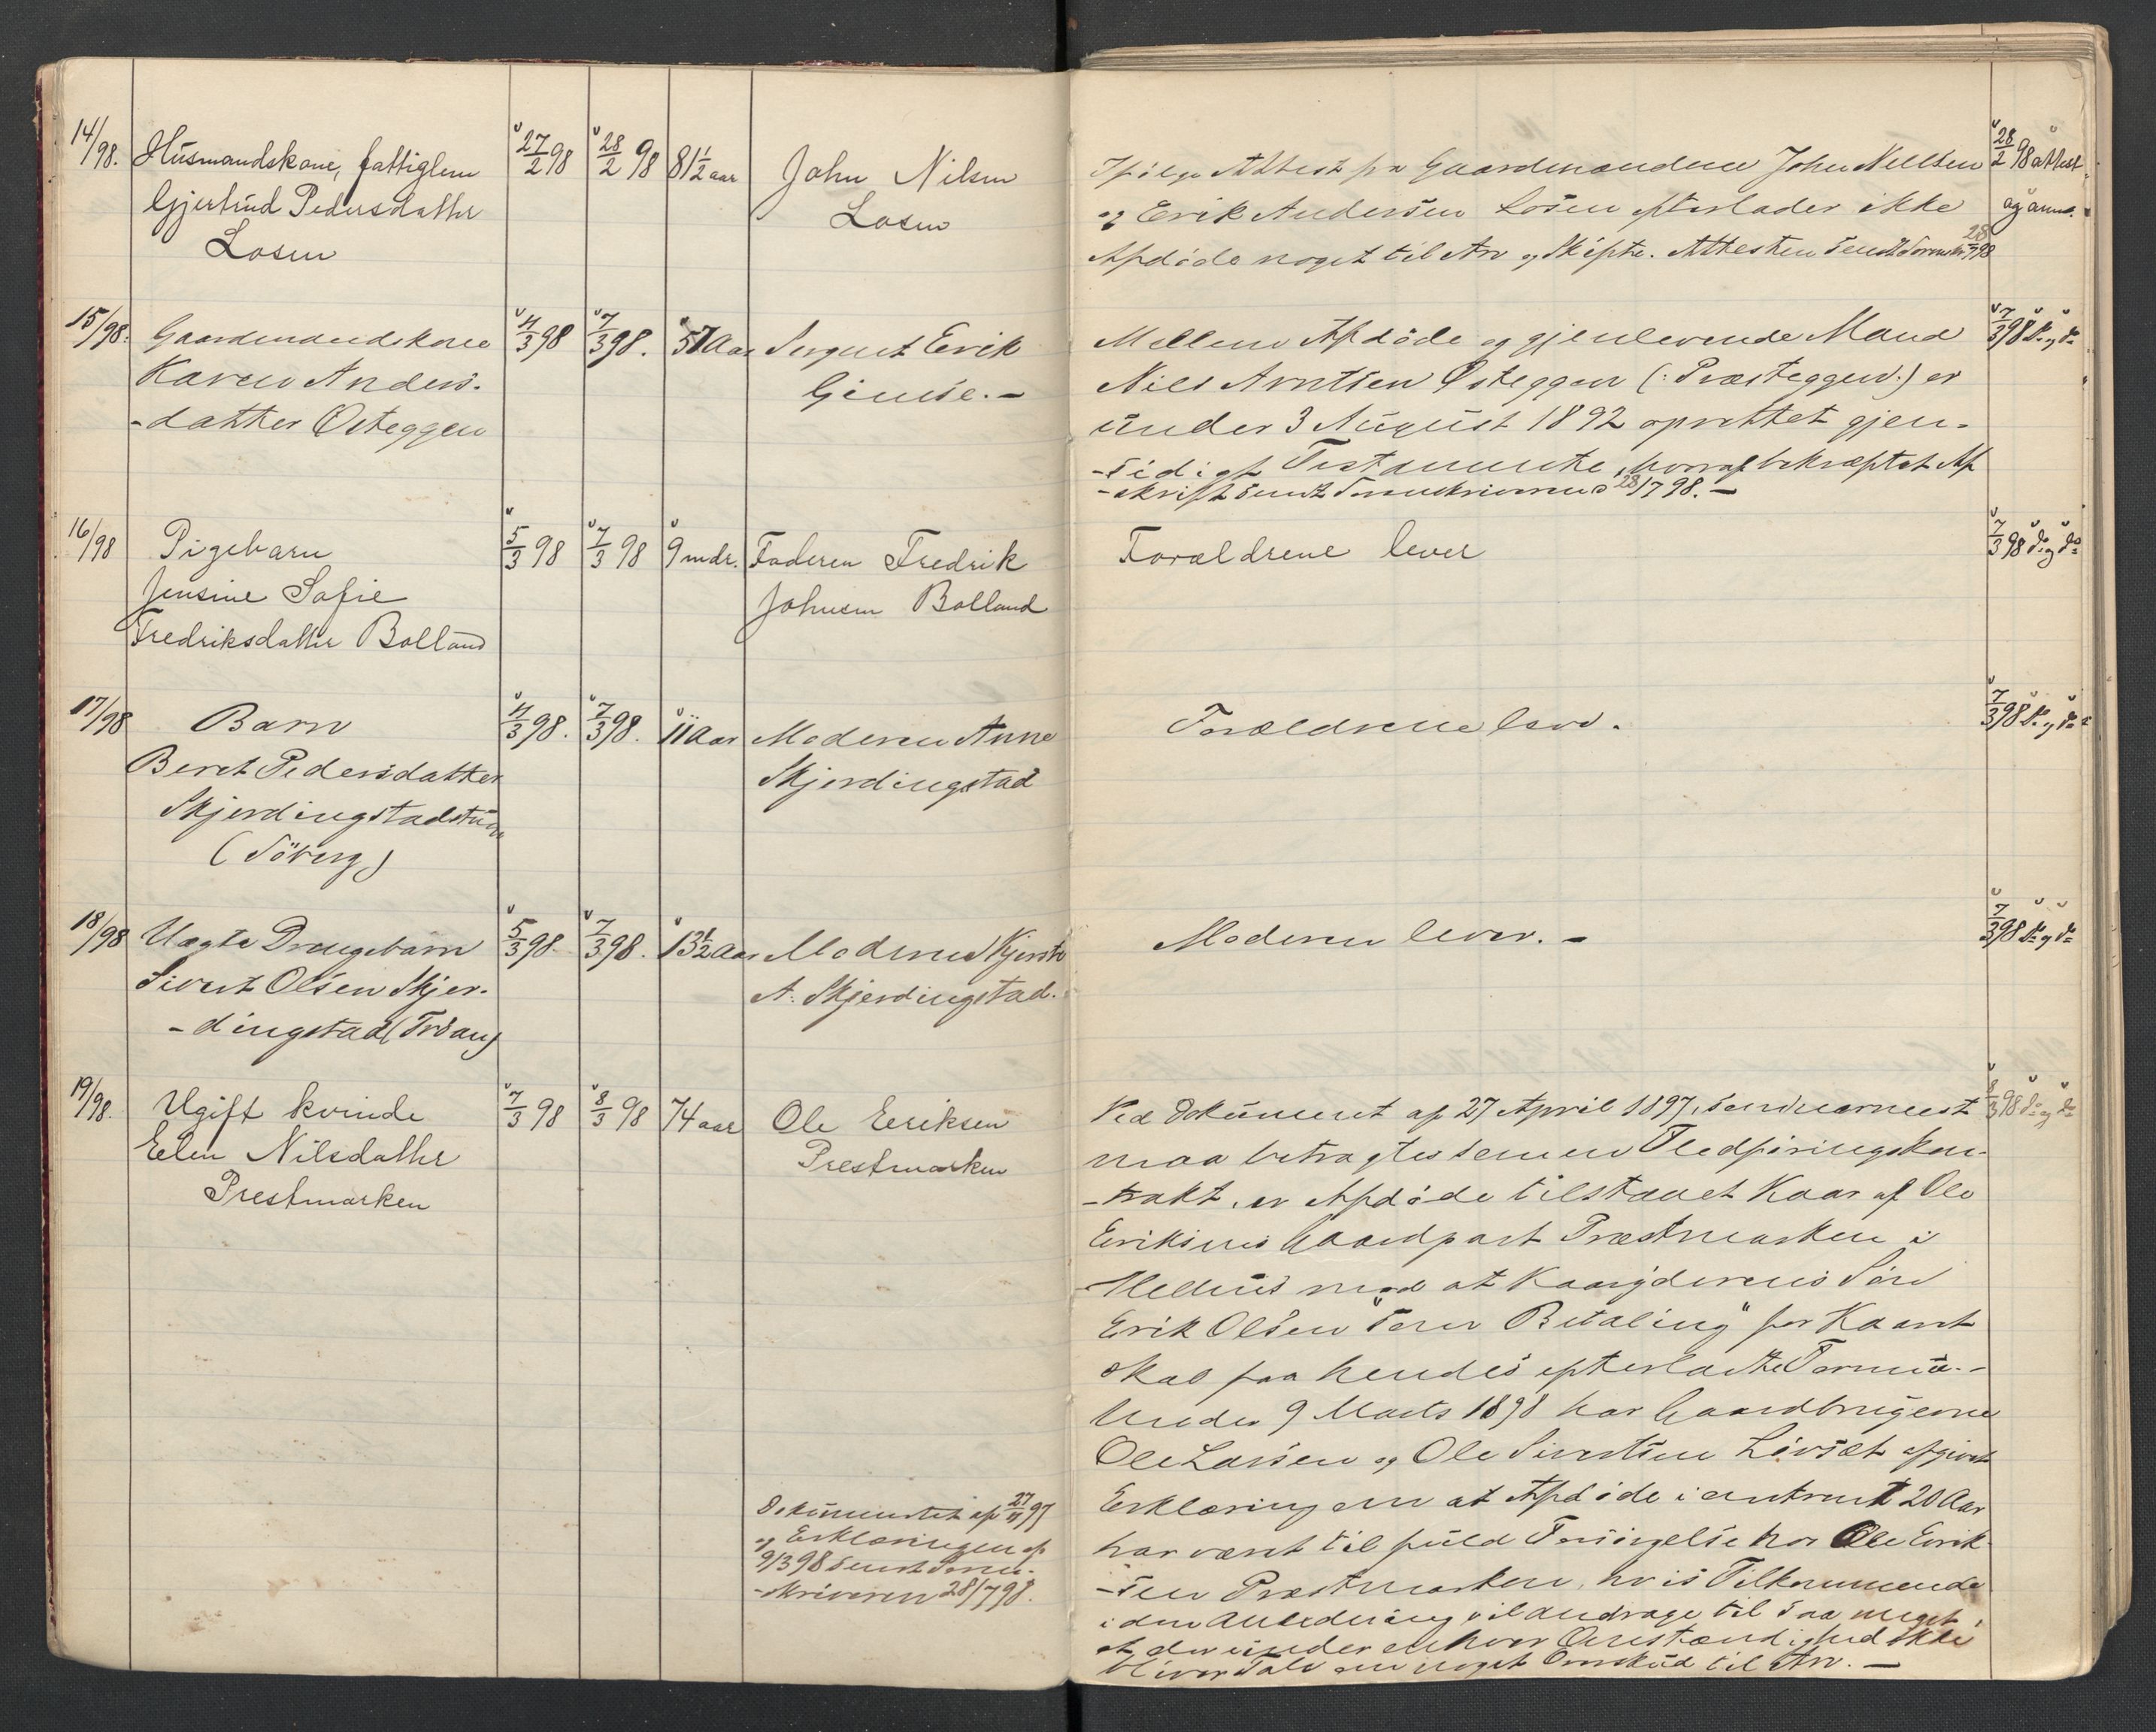 14/98. Husmandskone, fattiglem
Gjertrud Pedersdatter
Losen
27/2 98 28/2 98 81 1/2 aar
John Nilsen
Losen
Ifølge Attest fra Gaardmændene John Nilsen
og Erik Andersen Losen efterlader ikke
Afdøde noget til Arv og Skifte. Attesten sendt Sorenskr. 28/7 98
28/2 98 attest
og anm.
15/98. Gaardmandskone
Karen Anders-
-datter Østeggen
4/3 98 7/3 98. 57 Aar
Sergeant Erik
Gimse.-
Mellem Afdøde og gjenlevende Mand
Nils Arntsen Østeggen (: Præsteggen:) er
under 3 August 1892 oprettet gjen-
-sidigt Testamente, hvoraf bekræftet Af
-skrift sendt Sorenskriveren 28/7 98.-
7/3 98 do. og do
16/98 Pigebarn
Jensine Sofie
Fredriksdatter Bolland
5/3 98 7/3 98 9 mdr.
Faderen Fredrik
Johnsen Bolland
Forældrene lever
7/3 98 do. og do
17/98 Barn
Beret Pedersdatter
Skjerdingstadstuen
(Söberg)
4/3 98. 7/3 98. 11 Aar
Moderen Anne
Skjerdingstad
Forældrene lever.
7/3 98 do. og do
18/98 Uægte Drengebarn
Sivert Olsen Skjer-
-dingstad (Trøan)
5/3 98. 7/3 98. 13 1/2 Aar
Moderen Kjersti
A. Skjerdingstad.
Moderen lever.-
7/3 98 do. og do
19/98. Ugift kvinde
Elen Nilsdatter
Prestmarken
7/3 98 8/3 98 74 aar
Ole Eriksen
Prestmarken
Ved Dokument af 27 April 1897, som nærmest
maa betragtes som en Fledføringskon-
-trakt, er Afdøde tilstaaet Kaar af Ole
Eriksens Gaardpart Præstmarken i
Melhus mod at Kaargiverens Søn
Erik Olsen "som Betaling" for Kaaret
skal faa hendes efterladte Formue.-
Under 9 Marts 1898 har Gaardbrugerne
Ole Larsen og Ole Sivertsen Løvset afgivet
Erklæring om at Afdøde i omtrent 20 Aar
har været til fuld Forsørgelse hos Ole Erik-
-sen Præstmarken, hvis Tilkommende
i den Anledning vil andrage til saa meget
at der under enhver Omstændighed ikke
bliver Tale om noget Overskud til Arv.-
8/3 98 do. og do
Dokumentet af 27/4 97
og Erklæringen af
9/3 98 sendt Soren-
-skriveren 28/7 98.